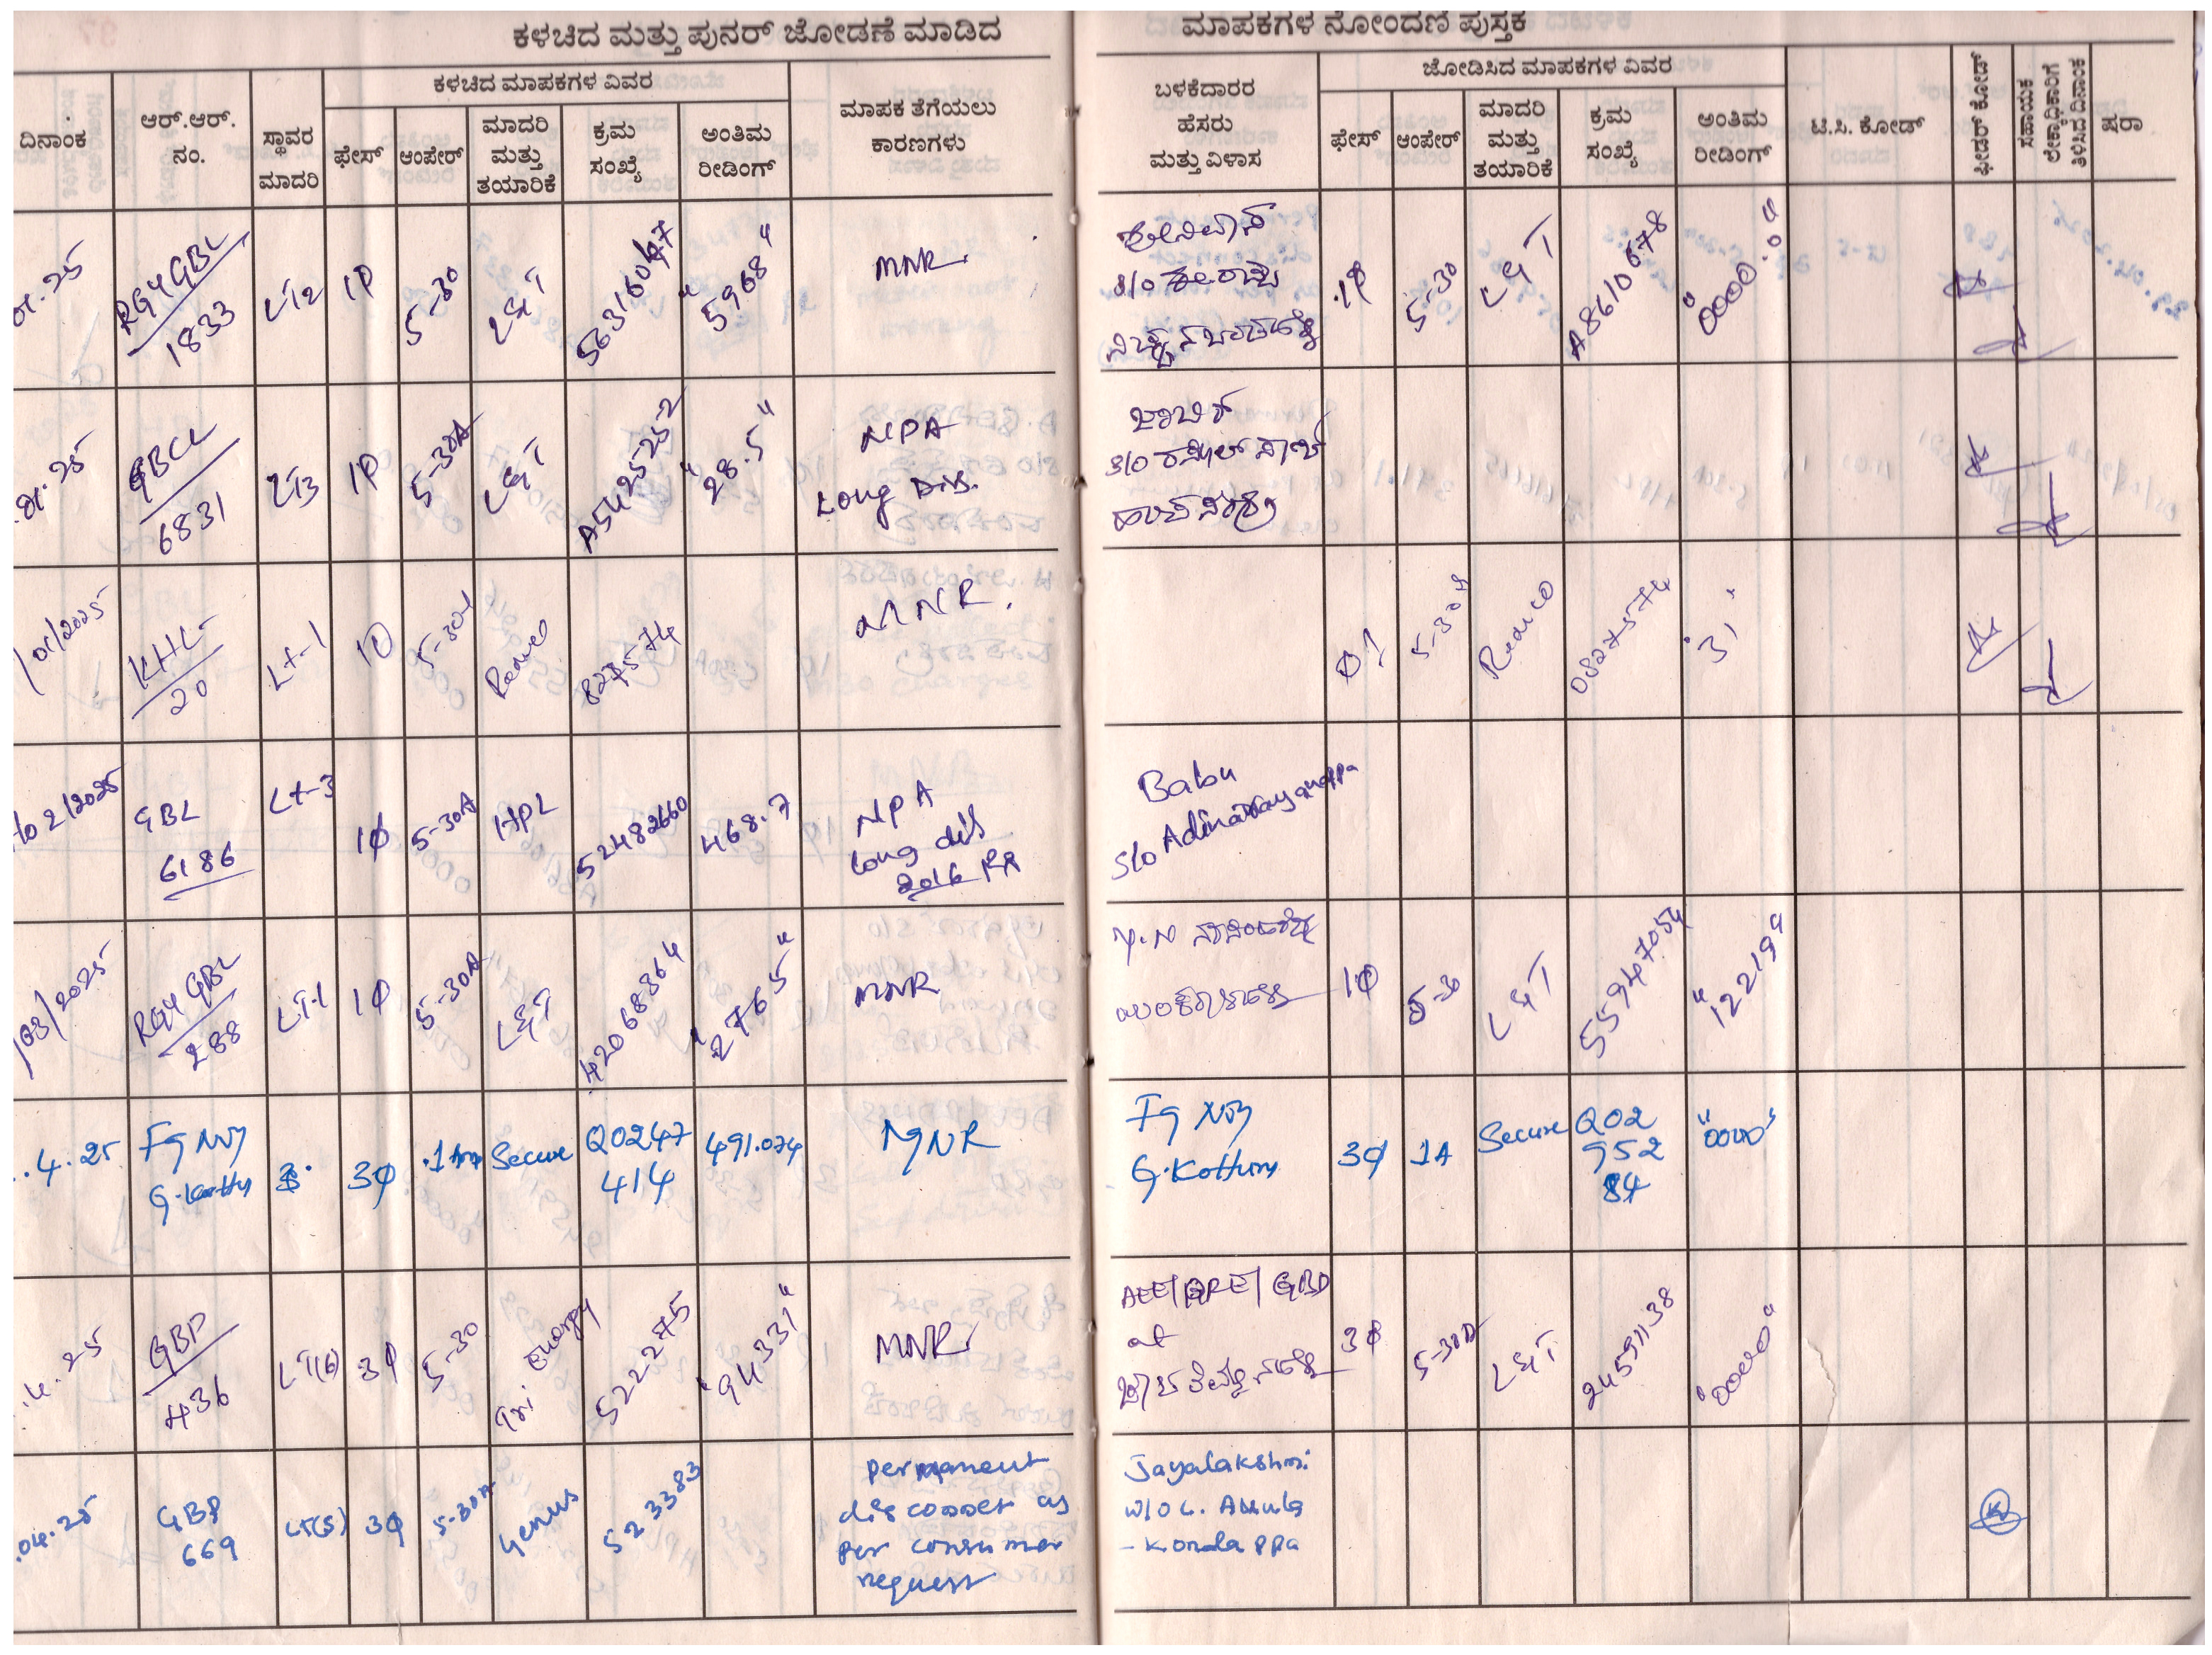 ಕಳಚಿದ ಮತ್ತು ಪುನರ್ ಜೋಡಣೆ ಮಾಡಿದ ಮಾಪಕಗಳ ನೋಂದಣಿ ಪುಸ್ತಕ
ದಿನಾಂಕ
ಆರ್.ಆರ್.
ನಂ.
ಸ್ಥಾವರ
ಮಾದರಿ
ಕಳಚಿದ ಮಾಪಕಗಳ ವಿವರ
ಫೇಸ್
ಆಂಪೇರ್
ಮಾದರಿ
ಮತ್ತು
ತಯಾರಿಕೆ
ಕ್ರಮ
ಸಂಖ್ಯೆ
ಅಂತಿಮ
ರೀಡಿಂಗ್
ಮಾಪಕ ತೆಗೆಯಲು
ಕಾರಣಗಳು
ಬಳಕೆದಾರರ
ಹೆಸರು
ಮತ್ತು ವಿಳಾಸ
ಜೋಡಿಸಿದ ಮಾಪಕಗಳ ವಿವರ
ಫೇಸ್
ಆಂಪೇರ್
ಮಾದರಿ
ಮತ್ತು
ತಯಾರಿಕೆ
ಕ್ರಮ
ಸಂಖ್ಯೆ
ಅಂತಿಮ
ರೀಡಿಂಗ್
ಟಿ.ಸಿ. ಕೋಡ್
ಫೀಡರ್ ಕೋಡ್
ಸಹಾಯಕ
ಲೆಕ್ಕಾಧಿಕಾರಿಗೆ
ತಿಳಿಸಿದ ದಿನಾಂಕ
ಷರಾ
01.25
RGYGBL
1833
LT2
1P
5-30
L&T
"5968"
MNR
S/O
1P
5-30
L&T
A8610678
"0000.0"
01.25
GBCL
6831
LT3
1P
5-30A
L&T
A54252522
"28.5"
NPA
Long Dis.
S/O
/01/2025
KHL
20
Lt-1
8275574
MNR.
08275574
"31"
02/2025
GBL
6186
Lt-3
1φ
5-30A
HPL
52482660
468.7
NPA
long dis
2016
Babu
S/o Adinarayanappa
/03/2025
RGY GBL
288
LT-1
1φ
5-30A
L&T
42068364
"2765"
MNR
1φ
5-30
L&T
55947054
"12219"
.4.25
3φ
Secure
Q0247
414
491.074
MNR
3φ
1A
Secure
Q02
952
84
"0000"
.4.25
GBP
436
LT(6)
3φ
5-30
Tri Energy
522275
"94331"
MNR
at
3φ
5-30A
L&T
24591138
"0000"
.04.25
GBP
669
LT(5)
3φ
5-30A
Genus
523383
Permanent
as
per consumer
request
Jayalakshmi
W/O